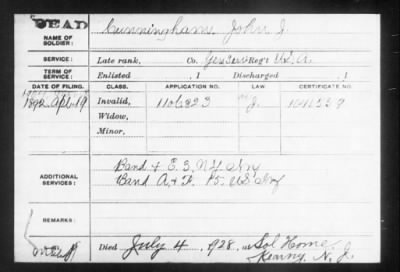 DEAD
NAME OF SOLDIER: Cunningham John J.
SERVICE: Late rank, Co. Gen Serv Reg't U.S.A.
TERM OF SERVICE: Enlisted , 1 Discharged , 1
DATE OF FILING. CLASS. APPLICATION NO. LAW. CERTIFICATE NO.
1892 Apl 19 Invalid, 1106823 J.
Widow,
Minor,
ADDITIONAL SERVICES:
Band & E. 3. N.Y. Inf
Band A & F. 15. U.S. Inf
REMARKS:
Died July 4, 1928, at Sol Home
Kearny N.J.